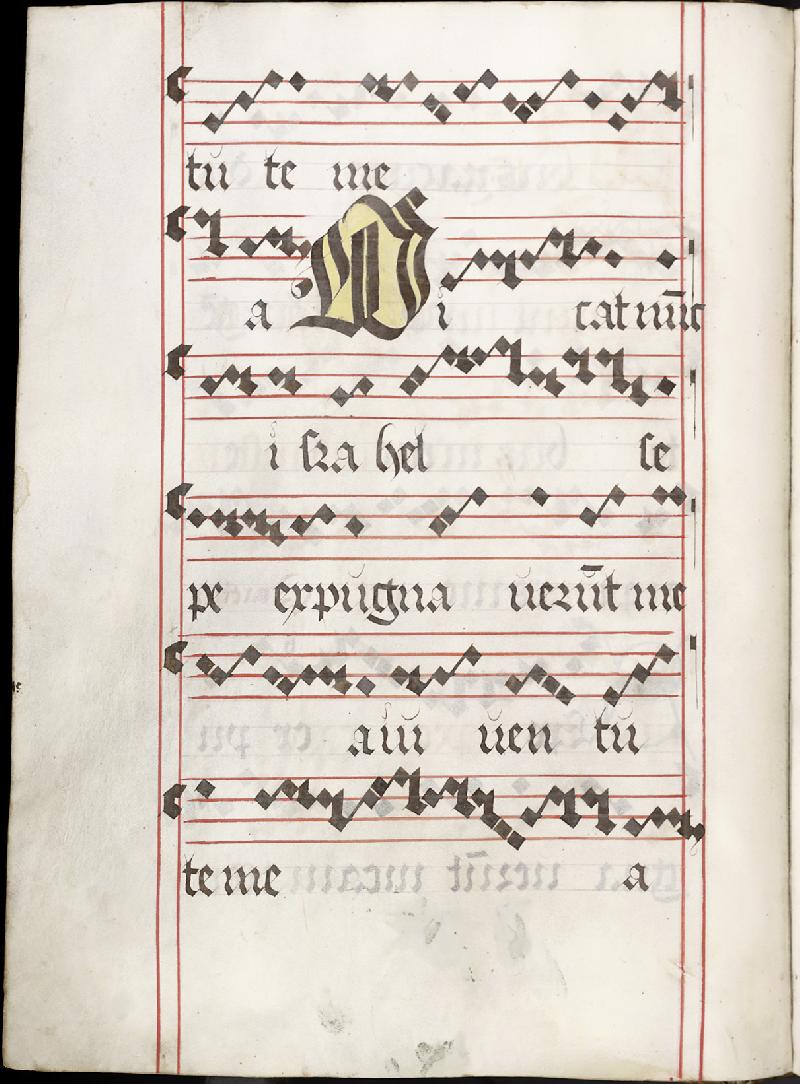 tu te me
a Dicat nūc
i sra hel se
pe expugna uerūt me
a iu uen tu
te me a